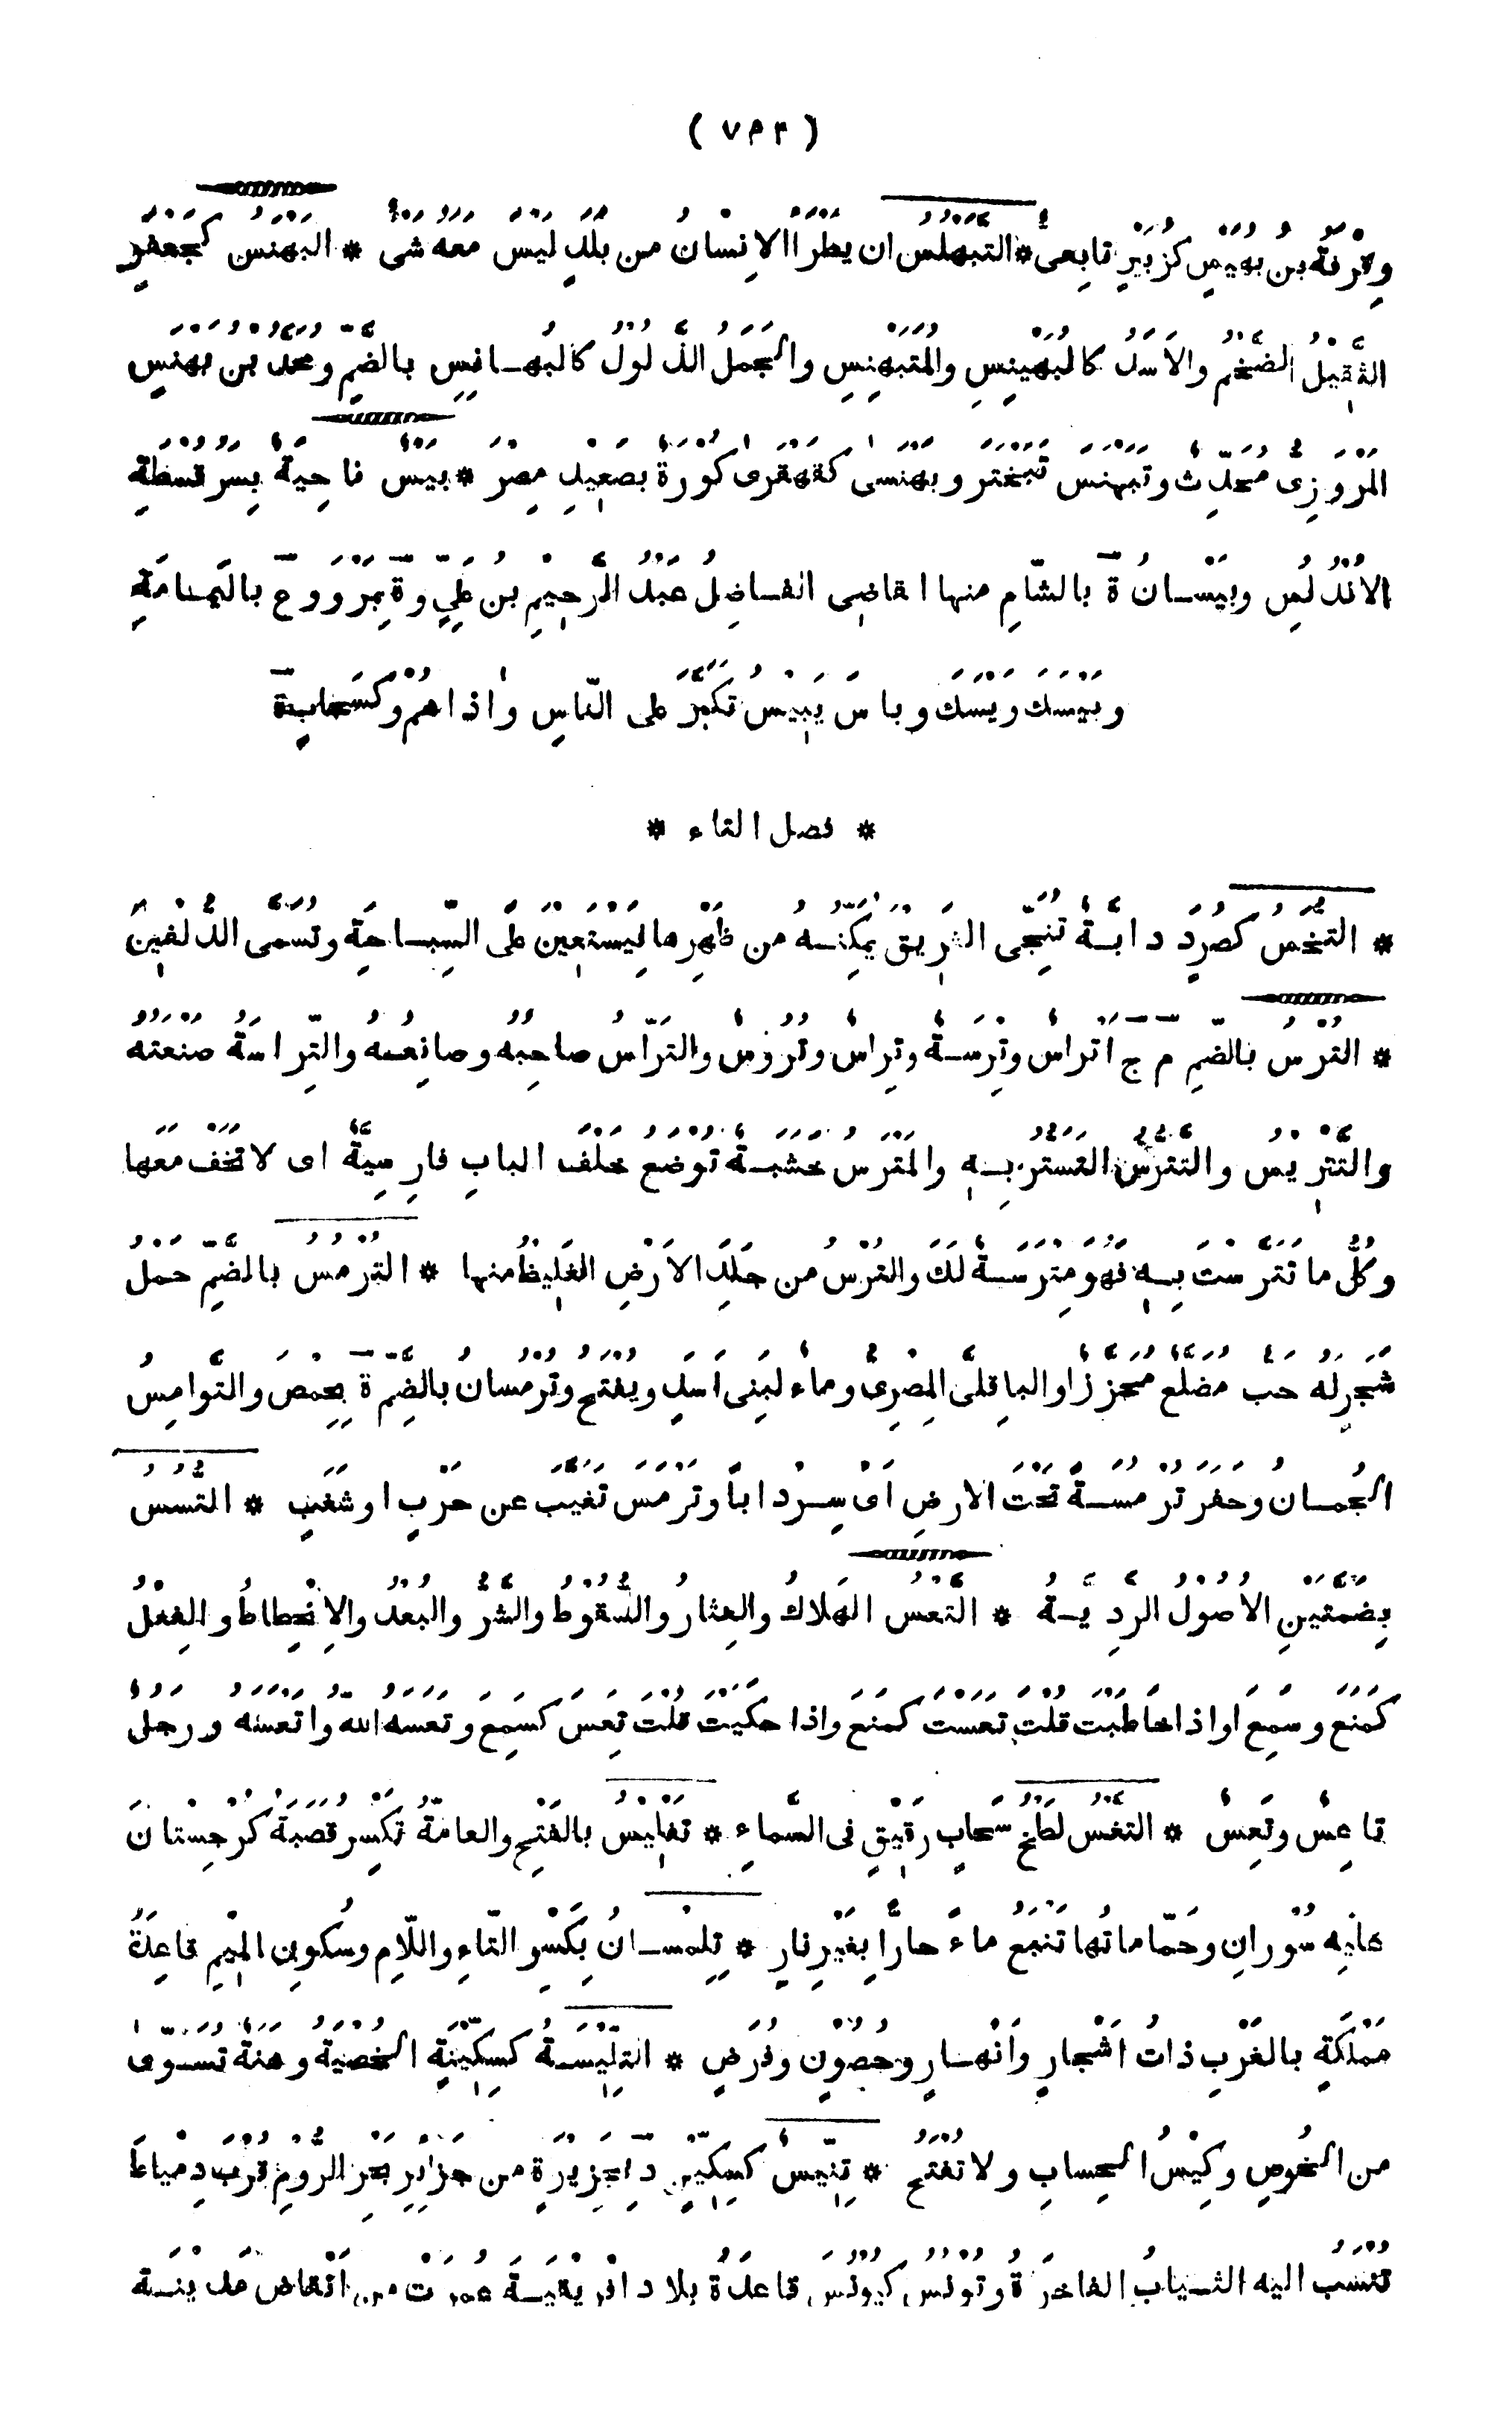 ( ٧٥٢ )
وقِرْفَةُ بن بُهَيْسٍ كزُبَيْرٍ تابِعىٌّ * التَّبَهْلُسُ ان يطرأ الانْسانُ من بَلَدٍ لَيْسَ معه شىءٌ * البَهْنَسُ كجَعْفَرٍ
الثَّقِيْلُ الضَّخْمُ والاَسَدُ كالمُبَهْنِسِ والمُتَبَهْنِسِ والجَمَلُ الذَّلُولُ كالبُهَانِسِ بالضَّمِّ ومحمَّدُ بْنُ بَهْنَسٍ
المَرْوَزِىُّ مُحَدِّثٌ وتَبَهْنَسَ تَبَخْتَرَ وبَهْنَسَى كقَهْقَرَى كُورَةٌ بصَعِيْدِ مِصْرَ * بَيْسٌ ناحِيَةٌ بِسَرَقُسْطَةِ
الاَنْدُلُسِ وبَيْسَانُ ة بالشَّامِ منها القاضِى الفاضِلُ عَبْدُ الرَّحِيْمِ بن عَلِيٍّ و ة بِمَرْوَ و ع باليَمَامَةِ
وبَيْسَكَ وَيْسَكَ وباسَ يَبِيْسُ تَكَبَّرَ على النّاسِ واٰذاهُمْ وكسَحابَةٍ ة
* فصل التاء *
* التُّخَسُ كصُرَدٍ دابَّةٌ تُنَجِّى الغَرِيقَ تُمَكِّنُهُ من ظَهْرِها لِيَسْتَعِيْنَ عَلَى السِّبَاحَةِ وتُسَمَّى الدُّلْفِيْنَ
* التُّرْسُ بالضّمِ م ج اَتْراسٌ وتِرَسَةٌ وتِراسٌ وتُرُوْسٌ والتَرّاسُ صاحِبُهُ وصانِعُهُ والتِّراسَةُ صَنْعَتُهُ
والتَّتْرِيْسُ والتَّتَرُّسُ التَسَتُّرُ بِهِ والمَتْرَسُ خَشَبَةٌ تُوضَعُ خَلْفَ البابِ فارِسِيَّةٌ اى لا تَخَفْ مَعَها
وكُلُّ ما تَتَرَّسْتَ بِهِ فَهُوَ مِتْرَسَةٌ لَكَ والتُرْسُ من جَلَدِ الاَرْضِ الغَلِيظُ منها * التُرْمُسُ بالضَّمِّ حَمْلُ
شَجَرٍ لَهُ حَبٌّ مُضَلَّعٌ مُحَزَّزٌ اَوِ الباقِلَّى المِصْرِىُّ وماءٌ لبَنِى اَسَدٍ ويُفْتَحُ وتُرْمُسانُ بالضَّمِّ ة بِحِمْصَ والتَّوامِسُ
الجُمَانُ وحَفَرَ تُرْمُسَةً تَحْتَ الارضِ اَىْ سِرْداباً وتَرْمَسَ تَغَيَّبَ عن حَرْبٍ او شَغَبٍ * التُّسُسُ
بِضَمَّتَيْنِ الاُصُوْلُ الرَّدِيَّةُ * التَّعْسُ الهَلاكُ والعِثَارُ والسُّقُوْطُ والشَّرُّ والبُعْدُ والاِنْحِطاطُ والفِعْلُ
كمَنَعَ وسَمِعَ او اذا خاطَبْتَ قُلْتَ تَعَسْتَ كمَنَعَ واذا حَكَيْتَ قُلْتَ تَعِسَ كسَمِعَ وتَعَسَهُ اللّهُ واَتْعَسَهُ ورَجُلٌ
تاعِسٌ وتَعِسٌ * التَّغْسُ لَطْخُ سَحابٍ رَقِيْقٍ فى السَّماءِ * تَفْلِيْسُ بالفَتْحِ والعامَّةُ تَكْسِرُ قَصَبَةُ كُرْجِسْتَانَ
عليْهِ سُوْرانِ وحَمّاماتُها تَنْبَعُ ماءً حارًّا بِغَيْرِ نارٍ * تِلِمْسَانُ بِكَسْرِ التاءِ واللّامِ وسُكُونِ المِيْمِ قاعِدَةُ
مَمْلَكَةٍ بالغَرْبِ ذاتُ اَشْجارٍ واَنْهَارٍ وحُصُوْنٍ وفُرَضٍ * التِّلِّيْسَةُ كسِكِّينَةٍ الخُصْيَةُ وهَنَةٌ تُسَوَّى
من الخُوصِ وكِيْسُ الحِسابِ ولا تُفْتَحُ * تِنِّيْسٌ كسِكِّيْنٍ د بجَزِيْرَةٍ من جَزائِرِ بَحْرِ الرُّوْمِ قُرْبَ دِمْياطَ
تُنْسَبُ اليه الثِّيابُ الفاخِرَةُ وتُوْنُسُ كيُونُسَ قاعِدَةُ بلاد افْرِيقِيَةَ عُمِرَتْ من اَنْقاضِ مَدِيْنَةِ